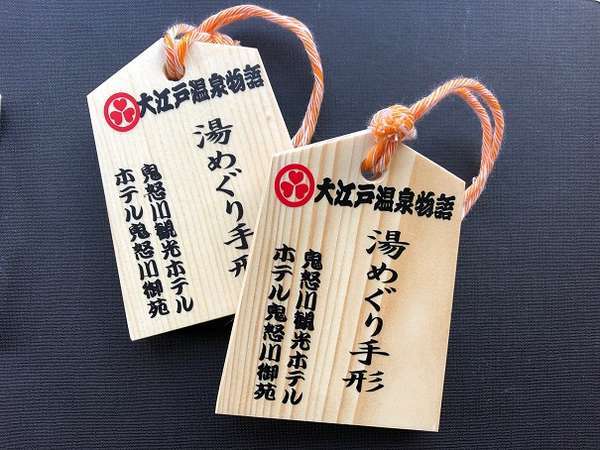 大江戸温泉物語
湯めぐり手形
鬼怒川観光ホテル
ホテル鬼怒川御苑
大江戸温泉物語
湯めぐり手形
鬼怒川観光ホテル
ホテル鬼怒川御苑